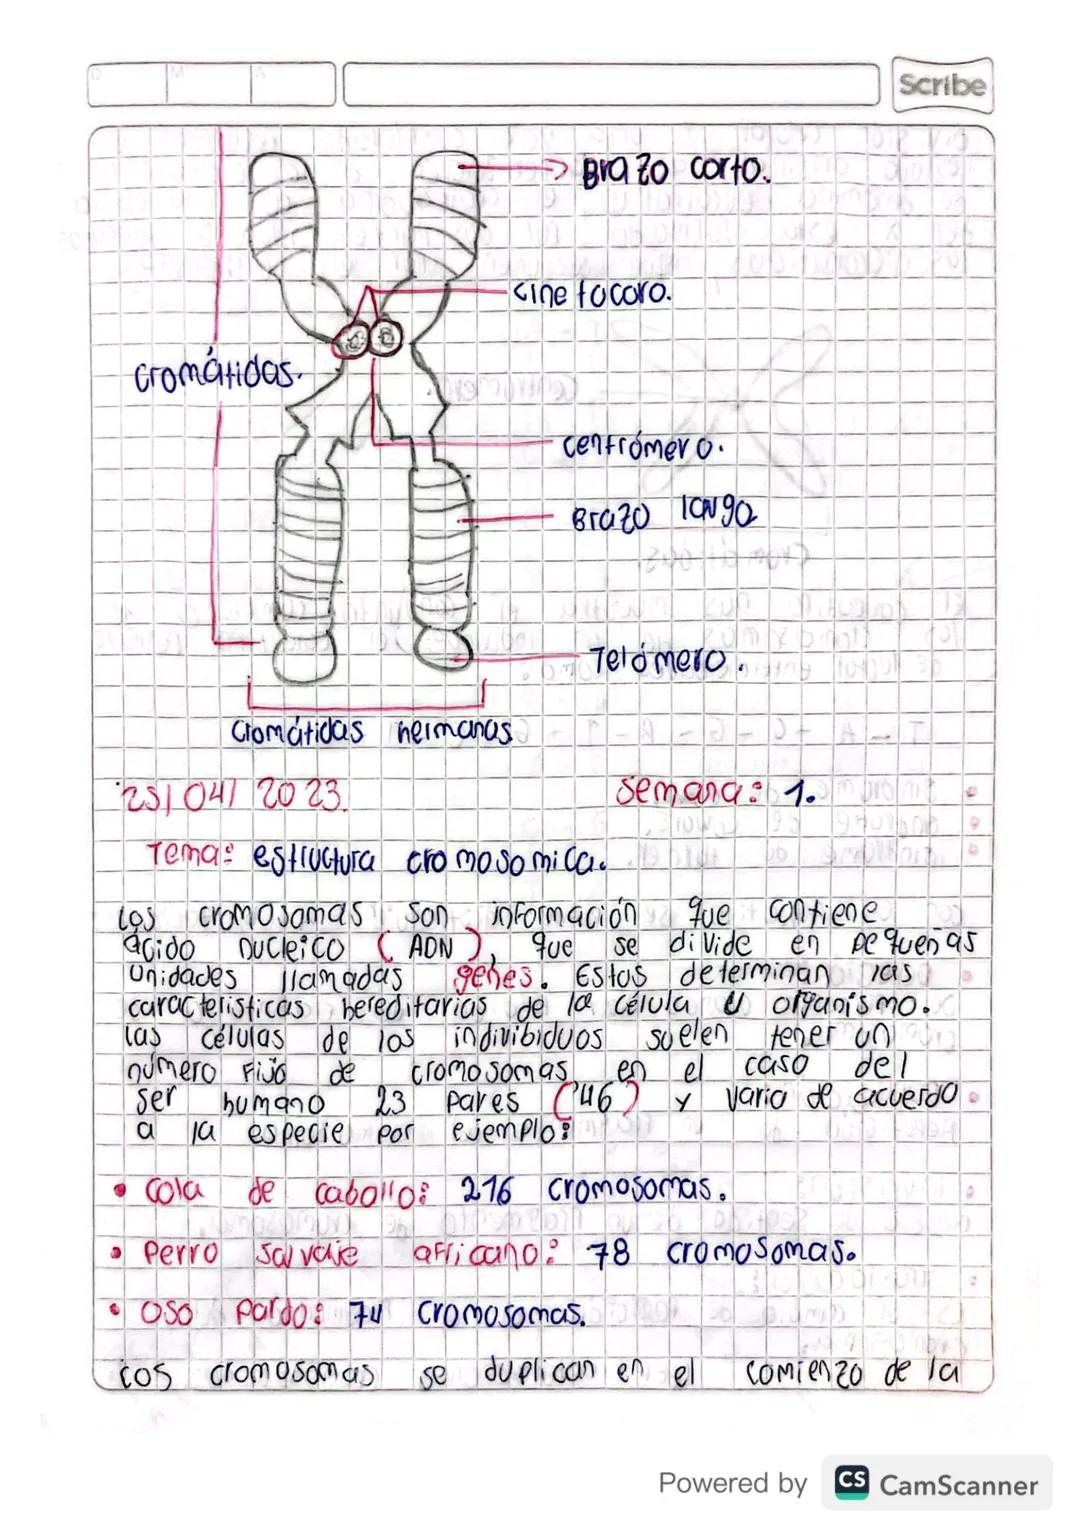 D M A
Scribe
Brazo corto.
cinetocoro.
cromátidas.
centrómero.
Brazo largo
Telómero.
cromátidas hermanas
25/04/2023.
semana: 1.
Tema: estructura cromosomica.
Los cromosomas son información que contiene
ácido nucleico (ADN), que se divide en pequeñas
unidades llamadas genes. Estos determinan las
características hereditarias de la célula u organismo.
las células de los indivibiduos suelen tener un
número fijo de cromosomas en el caso del
ser humano 23 pares (46) y varia de acuerdo
a la especie por ejemplo:
• cola de caballo: 216 cromosomas.
• Perro salvaje africano: 78 cromosomas.
• oso pardo: 74 cromosomas.
Los cromosomas se duplican en el comienzo de la
Powered by CS CamScanner